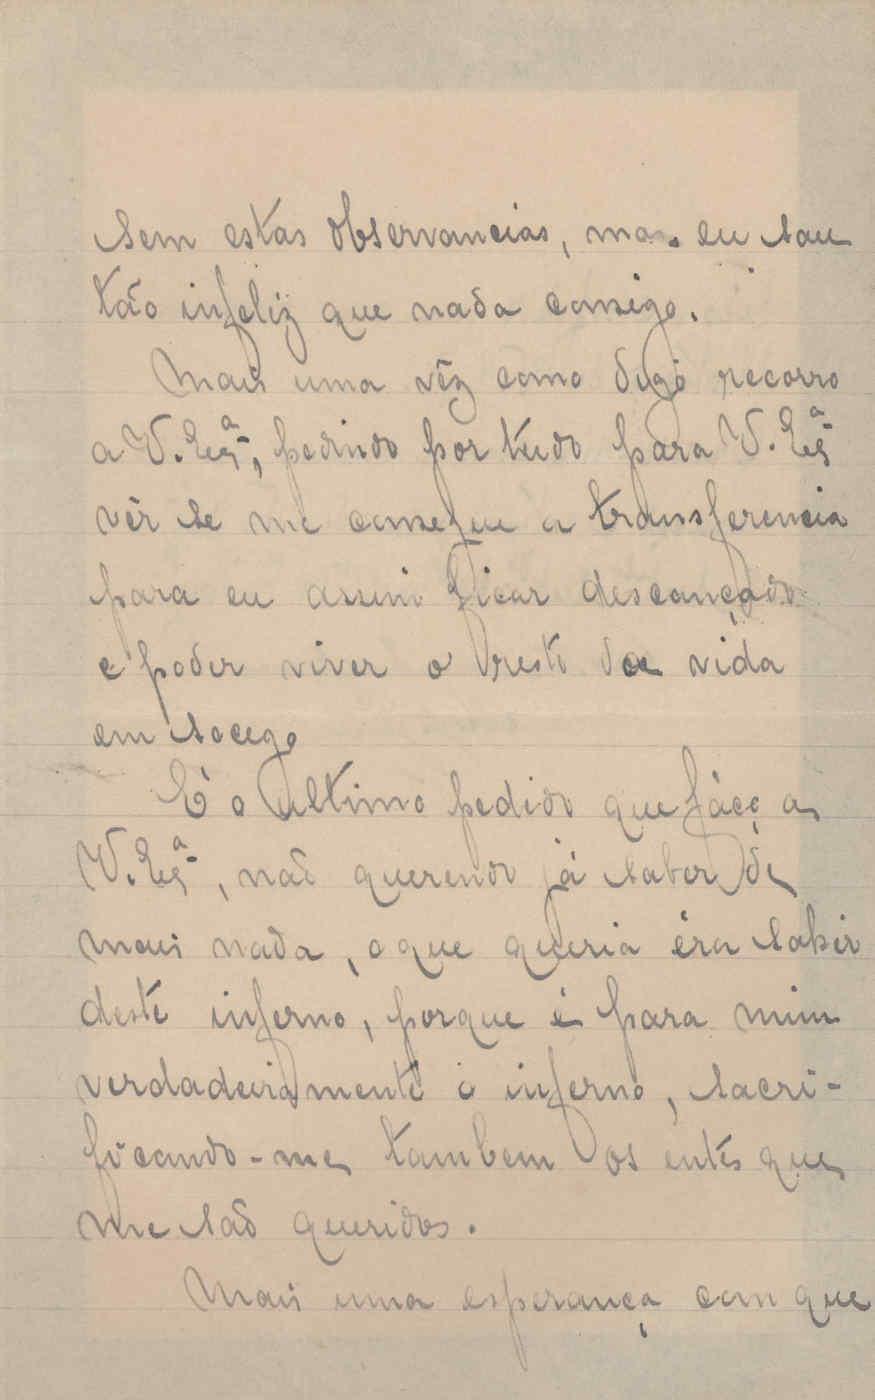 sem estas observancias, mas eu sou
tão infeliz que nada consigo.
Mais uma vêz como digo recorro
a V. Exª, pedindo por tudo para V. Exª
vêr se me consegue a transferencia
para eu assim ficar descançado
e poder viver o resto da vida
em socego
É o ultimo pedido que fáço a
V. Exª, não querendo já saber de
mais nada, o que queria éra sahir
deste inferno, porque é para mim
verdadeiramente o inferno, sacri-
ficando-me tambem os entes que
me são queridos.
Mais uma esperança com que